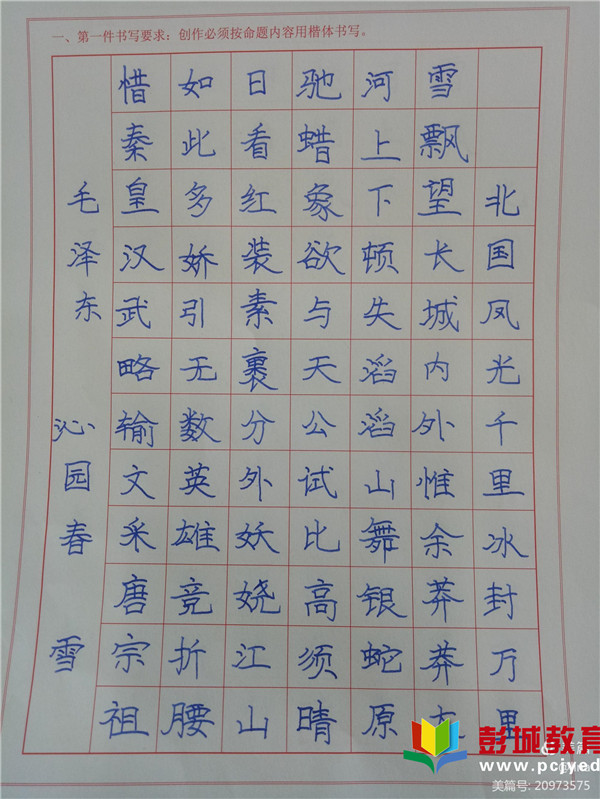 一、第一件书写要求：创作必须按命题内容用楷体书写。
北国凤光千里冰封万里
雪飘望长城内外惟余莽莽大
河上下顿失滔滔山舞银蛇原
驰蜡象欲与天公试比高须晴
日看红装素裹分外妖娆江山
如此多娇引无数英雄竞折腰
惜秦皇汉武略输文采唐宗祖
沁园春 雪
毛泽东
彭城教育
美篇号: 20973575